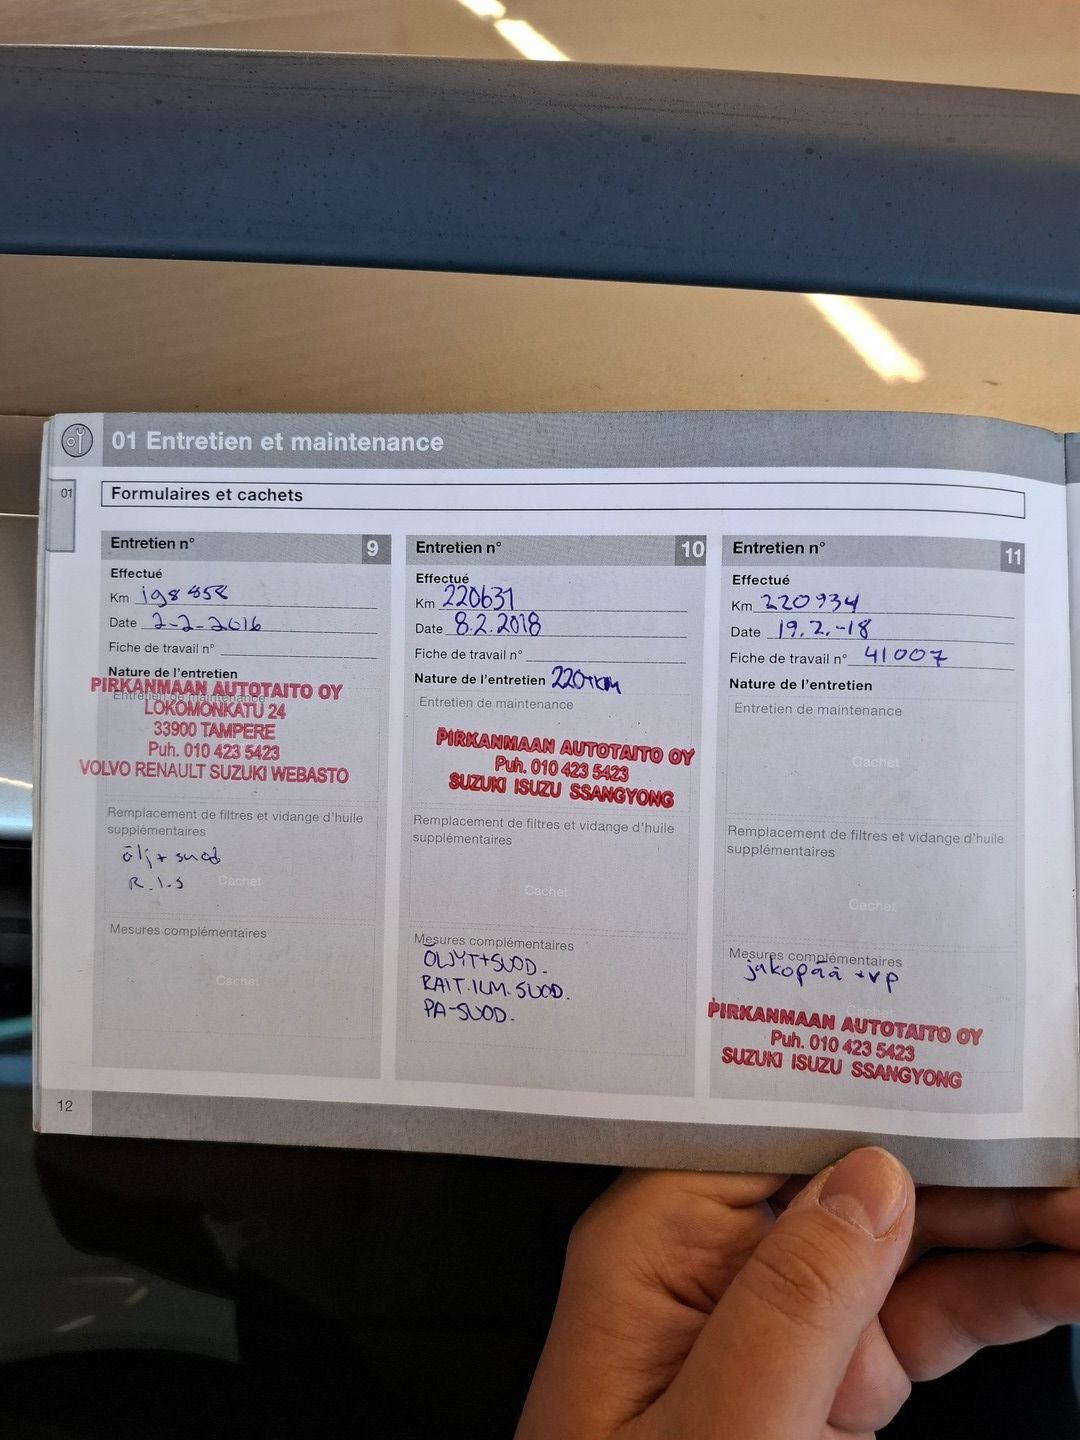 01 Entretien et maintenance
01
Formulaires et cachets
Entretien n° 9
Effectué
Km 198 858
Date 2-2-2016
Fiche de travail n°
Nature de l'entretien
Entretien de maintenance
PIRKANMAAN AUTOTAITO OY
LOKOMONKATU 24
33900 TAMPERE
Puh. 010 423 5423
VOLVO RENAULT SUZUKI WEBASTO
Remplacement de filtres et vidange d'huile
supplémentaires
ölj + suod
R.I.S
Cachet
Mesures complémentaires
Cachet
Entretien n° 10
Effectué
Km 220631
Date 8.2.2018
Fiche de travail n°
Nature de l'entretien 220tkm
Entretien de maintenance
PIRKANMAAN AUTOTAITO OY
Puh. 010 423 5423
SUZUKI ISUZU SSANGYONG
Remplacement de filtres et vidange d'huile
supplémentaires
Cachet
Mesures complémentaires
ÖLJYT+SUOD.
RAIT.ILM.SUOD.
PA-SUOD.
Entretien n° 11
Effectué
Km 220934
Date 19.2.-18
Fiche de travail n° 41007
Nature de l'entretien
Entretien de maintenance
Cachet
Remplacement de filtres et vidange d'huile
supplémentaires
Cachet
Mesures complémentaires
jakopää + vp
Cachet
PIRKANMAAN AUTOTAITO OY
Puh. 010 423 5423
SUZUKI ISUZU SSANGYONG
12